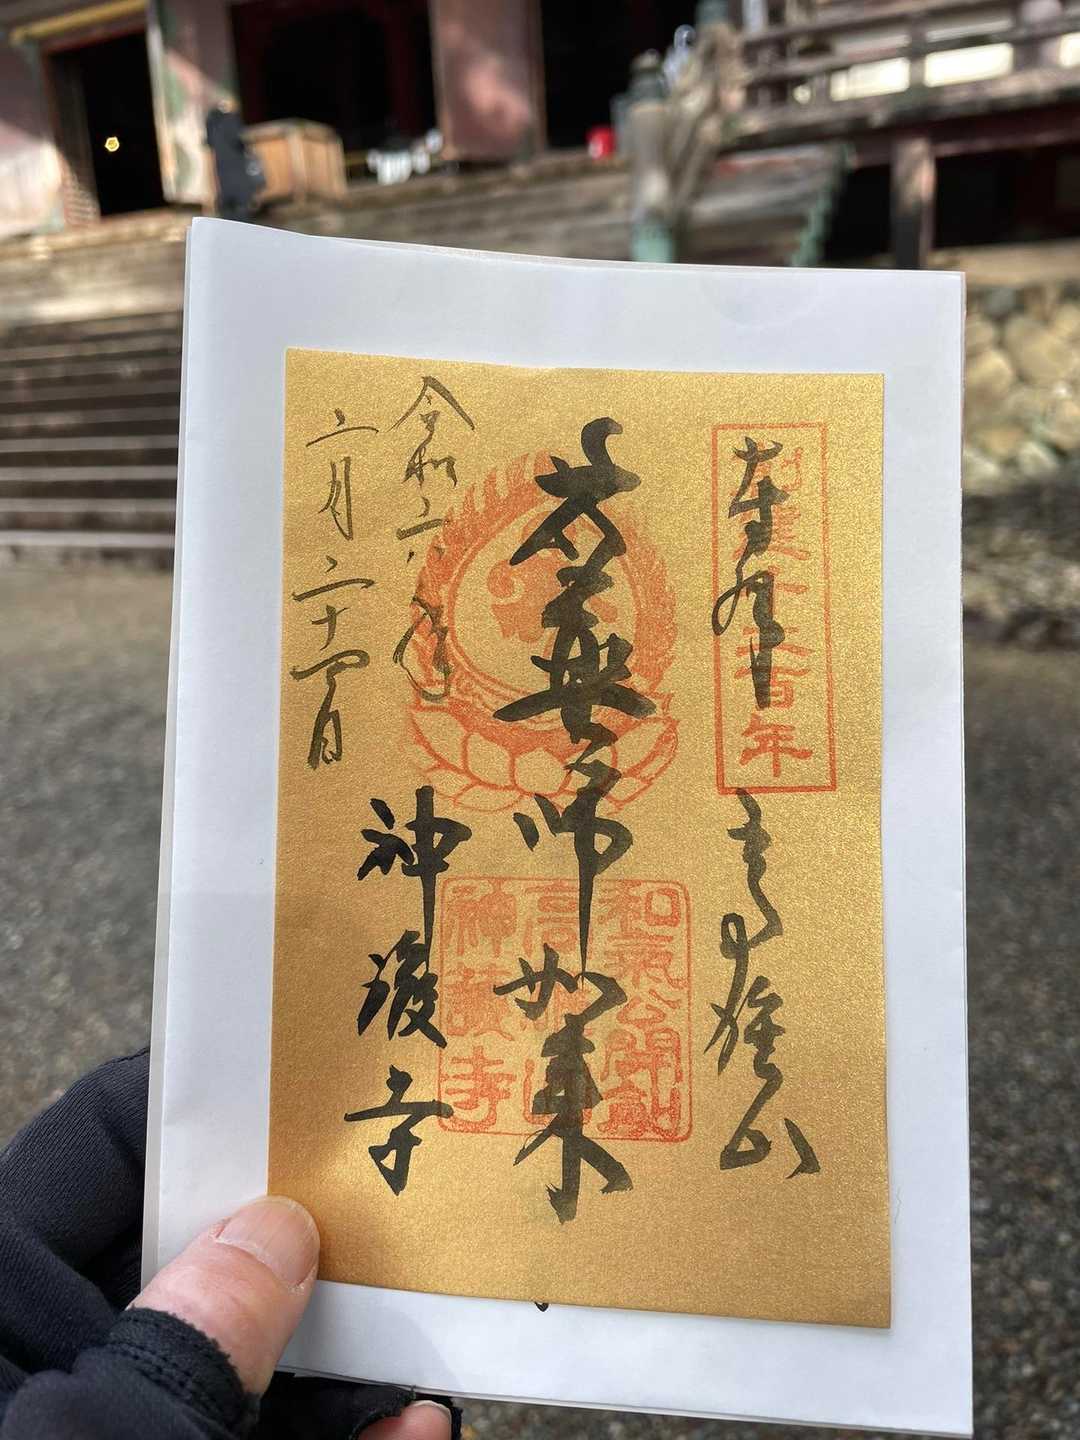 奉拝
高雄山
創建千二百年
薬師如来
和氣公開創
高雄山
神護寺
神護寺
令和六年
二月二十四日